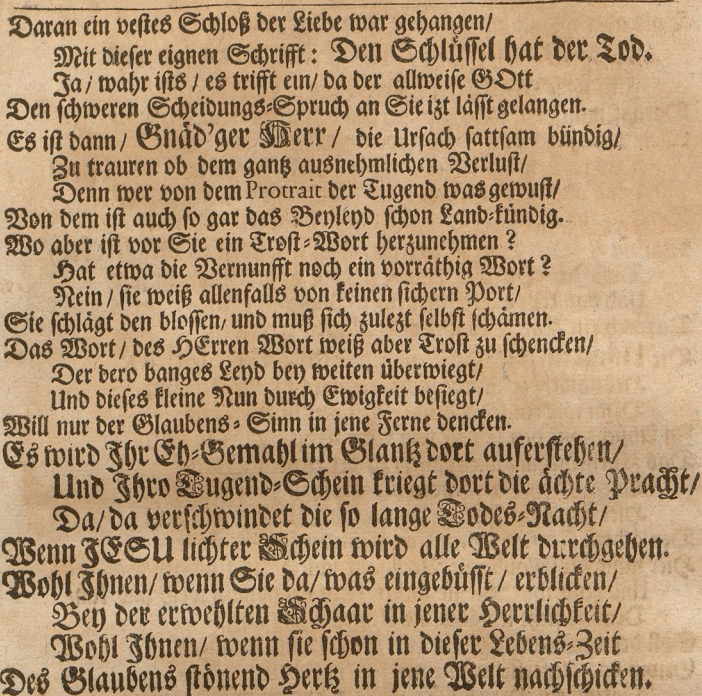 Daran ein vestes Schloß der Liebe war gehangen/
Mit dieser eignen Schrifft: Den Schlüssel hat der Tod.
Ja/ wahr ists/ es trifft ein/ da der allweise GOtt
Den schweren Scheidungs-Spruch an Sie izt lässt gelangen.
Es ist dann/ Gnäd'ger Herr/ die Ursach sattsam bündig/
Zu trauren ob dem gantz ausnehmlichen Verlust/
Denn wer von dem Protrait der Tugend was gewust/
Von dem ist auch so gar das Beyleyd schon Land-kündig.
Wo aber ist vor Sie ein Trost-Wort herzunehmen?
Hat etwa die Vernunfft noch ein vorräthig Wort?
Nein/ sie weiß allenfalls von keinen sichern Port/
Sie schlägt den blossen/ und muß sich zulezt selbst schämen.
Das Wort/ des HErren Wort weiß aber Trost zu schencken/
Der dero banges Leyd bey weiten überwiegt/
Und dieses kleine Nun durch Ewigkeit besiegt/
Will nur der Glaubens-Sinn in jene Ferne dencken.
Es wird Ihr Eh-Gemahl im Glantz dort auferstehen/
Und Ihro Tugend-Schein kriegt dort die ächte Pracht/
Da/ da verschwindet die so lange Todes-Nacht/
Wenn JESU lichter Schein wird alle Welt durchgehen.
Wohl Ihnen/ wenn Sie da/ was eingebüsst/ erblicken/
Bey der erwehlten Schaar in jener Herrlichkeit/
Wohl Ihnen/ wenn sie schon in dieser Lebens-Zeit
Des Glaubens stönend Hertz in jene Welt nachschicken.